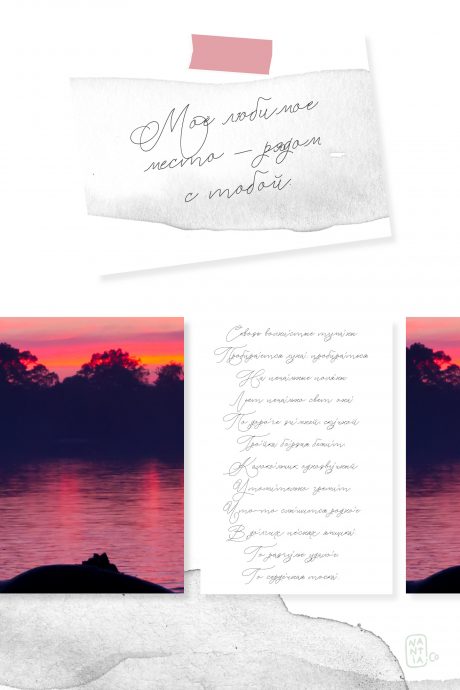 Мое любимое
место – рядом
с тобой.
Сквозь волнистые туманы
Пробирается луна
На печальные поляны
Льет печально свет она
По дороге зимней скучной
Тройка борзая бежит
Колокольчик однозвучный
Утомительно гремит
Что-то слышится родное
В долгих песнях ямщика
То разгулье удалое
То сердечная тоска
NANTIA.Co